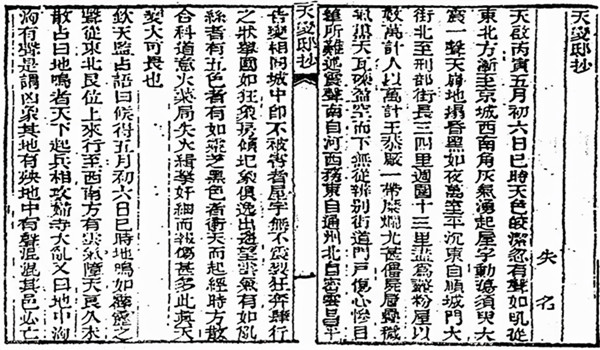 天變邸抄
失名
天啟丙寅五月初六日巳時天色皎潔忽有聲如吼從
東北方漸至京城西南角灰氣湧起屋宇動蕩須臾大
震一聲天崩地塌昏黑如夜萬室平沉東自順城門大
街北至刑部街長三四里週圍十三里盡為虀粉屋以
數萬計人以萬計王恭廠一帶糜爛尤甚僵屍層疊穢
氣熏天瓦礫盈空而下無從辨別街道門戶傷心慘目
筆所難述震聲南自河西務東自通州北自密雲昌平
天變邸抄
告變相同城中即不被害者屋宇無不震裂狂奔肆行
之狀舉國如狂象房傾圮象俱逸出遙望雲氣有如亂
絲者有五色者有如靈芝黑色者衝天而起經時方散
合科道意火藥局失火緝拏奸細而報傷甚多此真天
變大可畏也
欽天監占語曰候得五月初六日巳時地鳴如霹靂之
聲從東北艮位上來行至西南方有雲氣障天良久未
散占曰地鳴者天下起兵相攻婦寺大亂又曰地中洶
洶有聲是謂凶象其地有殃地中有聲混混其邑必亡